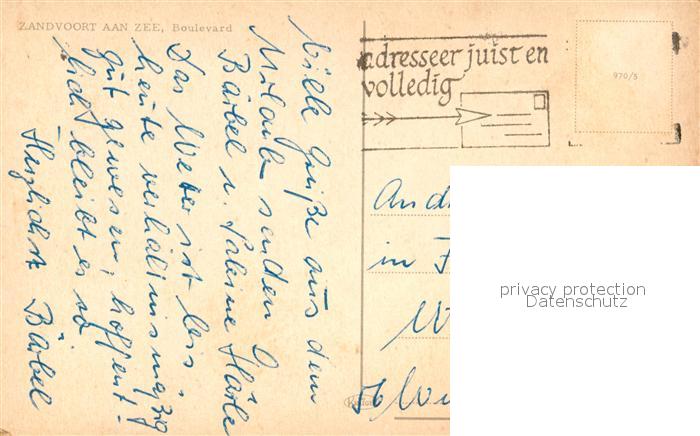 ZANDVOORT AAN ZEE, Boulevard
Viele Grüße aus dem
Urlaub senden
Bärbel u. Sabine Härle
Das Wetter ist bis
heute verhältnismäßig
gut gewesen, hoffent-
lich bleibt es so
Herzlichst Bärbel
adresseer juist en
volledig
970/5
in
56 
privacy protection
Datenschutz